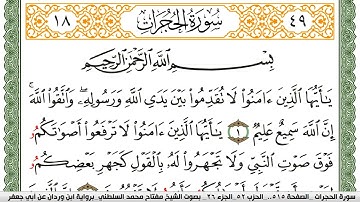 ٤٩ سورة الحجرات ١٨
بِسْمِ ٱللَّهِ ٱلرَّحْمَٰنِ ٱلرَّحِيمِ
يَٰٓأَيُّهَا ٱلَّذِينَ ءَامَنُوا۟ لَا تُقَدِّمُوا۟ بَيْنَ يَدَيِ ٱللَّهِ وَرَسُولِهِۦ وَٱتَّقُوا۟ ٱللَّهَ
إِنَّ ٱللَّهَ سَمِيعٌ عَلِيمٌ ١ يَٰٓأَيُّهَا ٱلَّذِينَ ءَامَنُوا۟ لَا تَرْفَعُوٓا۟ أَصْوَٰتَكُمُۥ
فَوْقَ صَوْتِ ٱلنَّبِيِّ وَلَا تَجْهَرُوا۟ لَهُۥ بِٱلْقَوْلِ كَجَهْرِ بَعْضِكُمُۥ
سورة الحجرات _الصفحة ٥١٥_ الحزب ٥٢_ الجزء ٢٦_ بصوت الشيخ مفتاح محمد السلطني_ برواية ابن وردان عن أبي جعفر